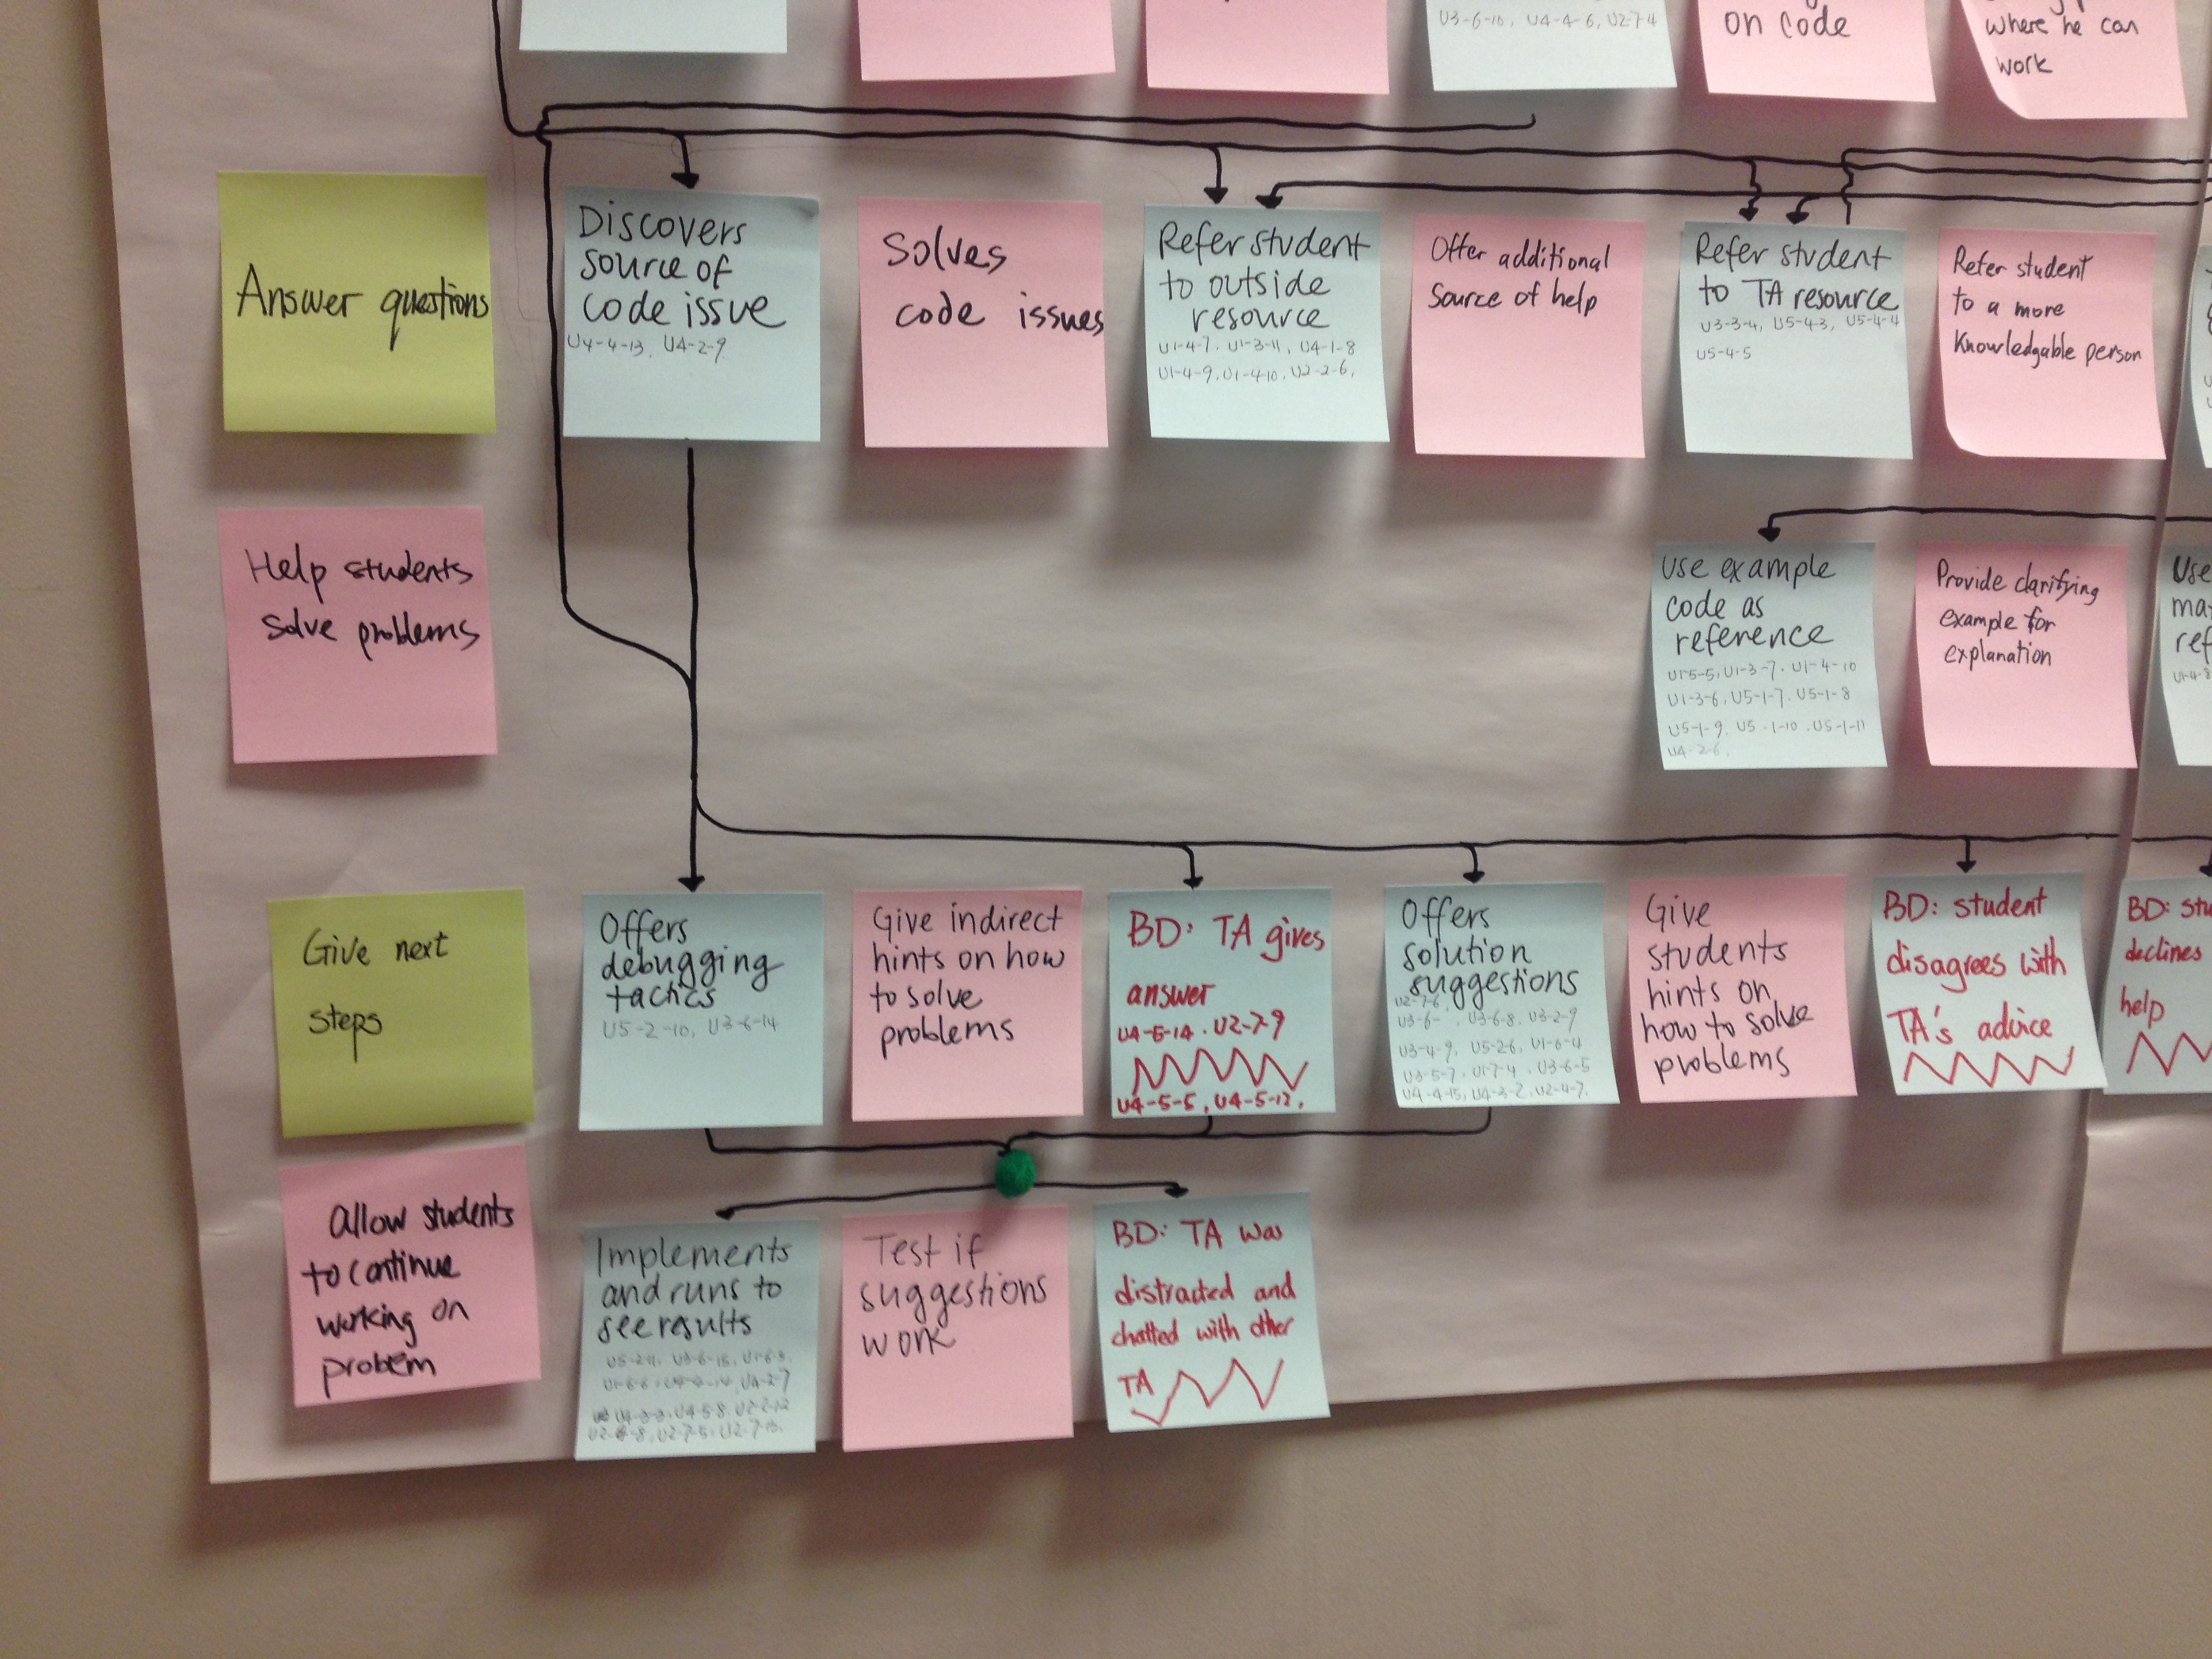 U3-6-10, U4-4-6, U2-7-4
on code
where he can
work
Answer questions
Discovers
source of
code issue
U4-4-13, U4-2-9
Solves
code issues
Refer student
to outside
resource
U1-4-7, U1-3-11, U4-1-8
U1-4-9, U1-4-10, U2-2-6,
Offer additional
source of help
Refer student
to TA resource
U3-3-4, U5-4-3, U5-4-4
U5-4-5
Refer student
to a more
knowledgable person
Help students
solve problems
Use example
code as
reference
U1-5-5, U1-3-7, U1-4-10
U1-3-6, U5-1-7, U5-1-8
U5-1-9, U5-1-10, U5-1-11
U4-2-6,
Provide clarifying
example for
explanation
Use
ma
ref
U1-4-8
Give next
steps
Offers
debugging
tactics
U5-2-10, U3-6-14
Give indirect
hints on how
to solve
problems
BD: TA gives
answer
U4-5-14, U2-7-9
U4-5-5, U4-5-12,
Offers
solution
suggestions
U2-7-6
U3-6-8, U3-2-9
U3-4-9, U5-2-6, U1-6-4
U3-5-7, U1-7-4, U3-6-5
U4-4-15, U4-3-2, U2-4-7,
Give
students
hints on
how to solve
problems
BD: student
disagrees with
TA's advice
BD: stu
declines
help
Allow students
to continue
working on
problem
Implements
and runs to
see results
U5-2-11, U3-6-15, U1-6-8,
U4-2-7
U4-5-8, U2-2-12
U2-7-5, U2-7-13,
Test if
suggestions
work
BD: TA was
distracted and
chatted with other
TA